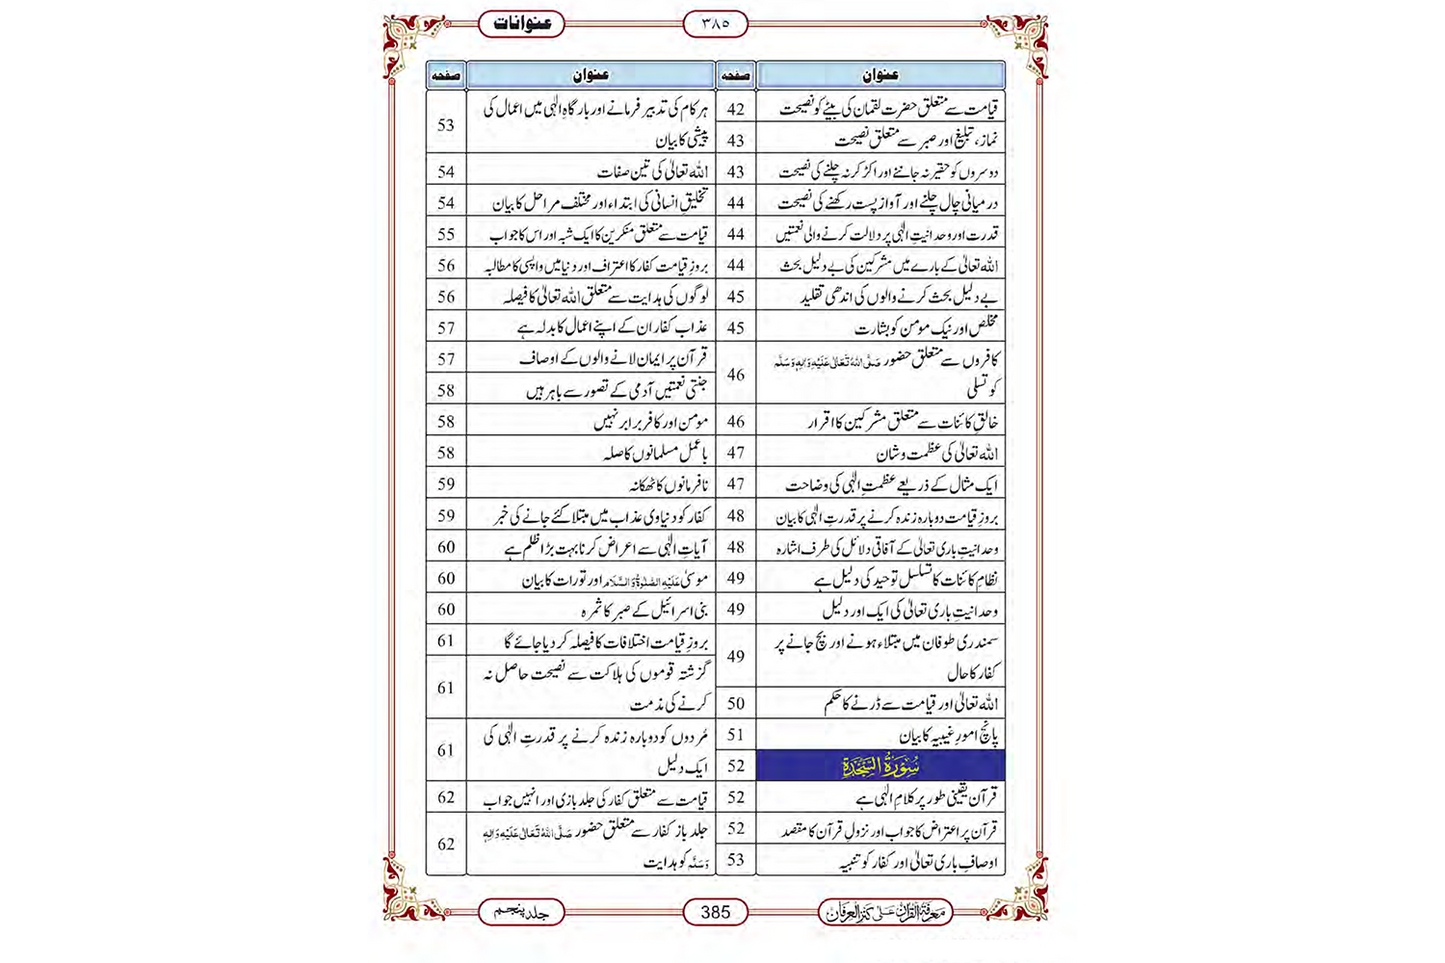 عنوانات
۳۸۵
عنوان صفحہ
قیامت سے متعلق حضرت لقمان کی بیٹے کو نصیحت 42
نماز، تبلیغ اور صبر سے متعلق نصیحت 43
دوسروں کو حقیر نہ جاننے اور اکڑ کر نہ چلنے کی نصیحت 43
درمیانی چال چلنے اور آواز پست رکھنے کی نصیحت 44
قدرت اور وحدانیتِ الٰہی پر دلالت کرنے والی نعمتیں 44
اللہ تعالیٰ کے بارے میں مشرکین کی بے دلیل بحث 44
بے دلیل بحث کرنے والوں کی اندھی تقلید 45
مخلص اور نیک مومن کو بشارت 45
کافروں سے متعلق حضور صَلَّی اللہُ تَعَالٰی عَلَیْہِ وَاٰلِہٖ وَسَلَّم
کو تسلی 46
خالقِ کائنات سے متعلق مشرکین کا اقرار 46
اللہ تعالیٰ کی عظمت و شان 47
ایک مثال کے ذریعے عظمتِ الٰہی کی وضاحت 47
بروزِ قیامت دوبارہ زندہ کرنے پر قدرتِ الٰہی کا بیان 48
وحدانیتِ باری تعالیٰ کے آفاقی دلائل کی طرف اشارہ 48
نظامِ کائنات کا تسلسل توحید کی دلیل ہے 49
وحدانیتِ باری تعالیٰ کی ایک اور دلیل 49
سمندری طوفان میں مبتلاء ہونے اور بچ جانے پر
کفار کا حال 49
اللہ تعالیٰ اور قیامت سے ڈرنے کا حکم 50
پانچ امورِ غیبیہ کا بیان 51
سُوْرَۃُ السَّجْدَۃِ 52
قرآن یقینی طور پر کلامِ الٰہی ہے 52
قرآن پر اعتراض کا جواب اور نزولِ قرآن کا مقصد 52
اوصافِ باری تعالیٰ اور کفار کو تنبیہ 53
عنوان صفحہ
ہر کام کی تدبیر فرمانے اور بارگاہِ الٰہی میں اعمال کی
پیشی کا بیان 53
اللہ تعالیٰ کی تین صفات 54
تخلیقِ انسانی کی ابتداء اور مختلف مراحل کا بیان 54
قیامت سے متعلق منکرین کا ایک شبہ اور اس کا جواب 55
بروزِ قیامت کفار کا اعتراف اور دنیا میں واپسی کا مطالبہ 56
لوگوں کی ہدایت سے متعلق اللہ تعالیٰ کا فیصلہ 56
عذاب کفار ان کے اپنے اعمال کا بدلہ ہے 57
قرآن پر ایمان لانے والوں کے اوصاف 57
جنتی نعمتیں آدمی کے تصور سے باہر ہیں 58
مومن اور کافر برابر نہیں 58
باعمل مسلمانوں کا صلہ 58
نافرمانوں کا ٹھکانہ 59
کفار کو دنیاوی عذاب میں مبتلا کئے جانے کی خبر 59
آیاتِ الٰہی سے اعراض کرنا بہت بڑا ظلم ہے 60
موسیٰ عَلَیْہِ الصَّلٰوۃُ وَالسَّلَام اور تورات کا بیان 60
بنی اسرائیل کے صبر کا ثمرہ 60
بروزِ قیامت اختلافات کا فیصلہ کر دیا جائے گا 61
گزشتہ قوموں کی ہلاکت سے نصیحت حاصل نہ
کرنے کی مذمت 61
مُردوں کو دوبارہ زندہ کرنے پر قدرتِ الٰہی کی
ایک دلیل 61
قیامت سے متعلق کفار کی جلد بازی اور انہیں جواب 62
جلد باز کفار سے متعلق حضور صَلَّی اللہُ تَعَالٰی عَلَیْہِ وَاٰلِہٖ
وَسَلَّم کو ہدایت 62
مَعْرِفَۃُ الْقُرْاٰن عَلٰی کَنْزِ الْعِرْفَان
385
جلد پنجم